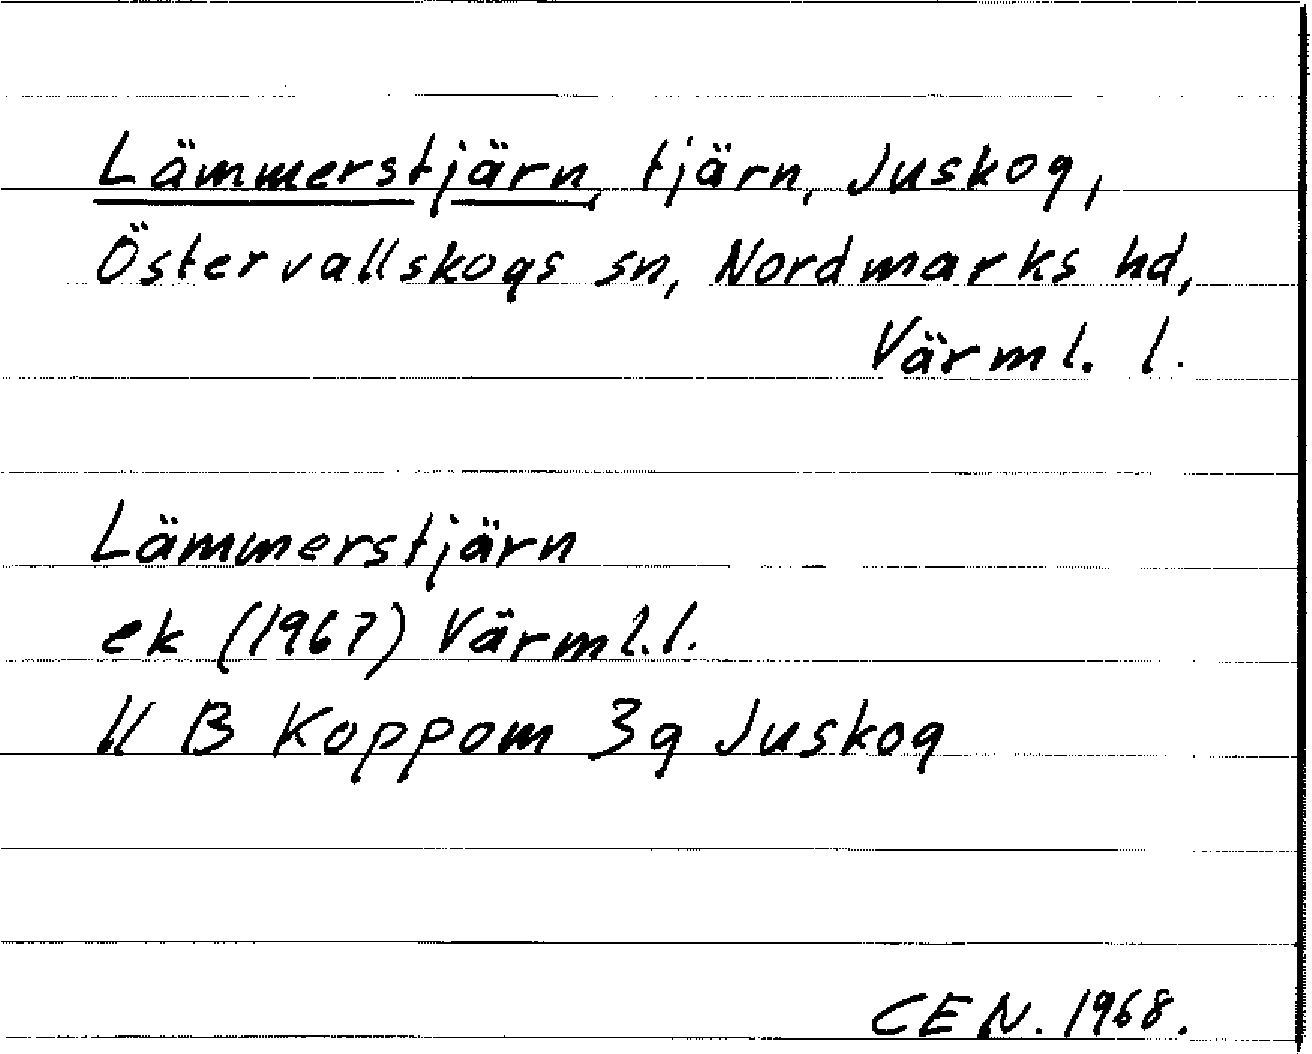 Lämmerstjärn, tjärn, Juskog,
Östervallskogs sn, Nordmarks hd,
Värml. l.
Lämmerstjärn
ek (1967) Värml. l.
11 B Koppom 3g Juskog
CEN. 1968.